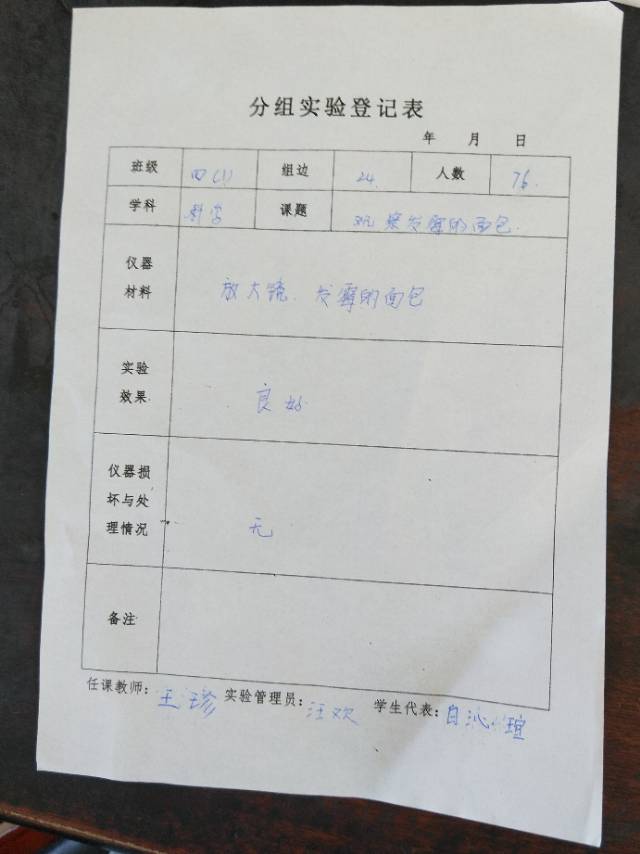 分组实验登记表
年 月 日
班级 四(1) 组边 24 人数 76.
学科 科学 课题 观察发霉的面包.
仪器
材料
放大镜. 发霉的面包
实验
效果
良好
仪器损
坏与处
理情况
无
备注
任课教师: 王珍 实验管理员: 汪欢 学生代表: 白沁瑄